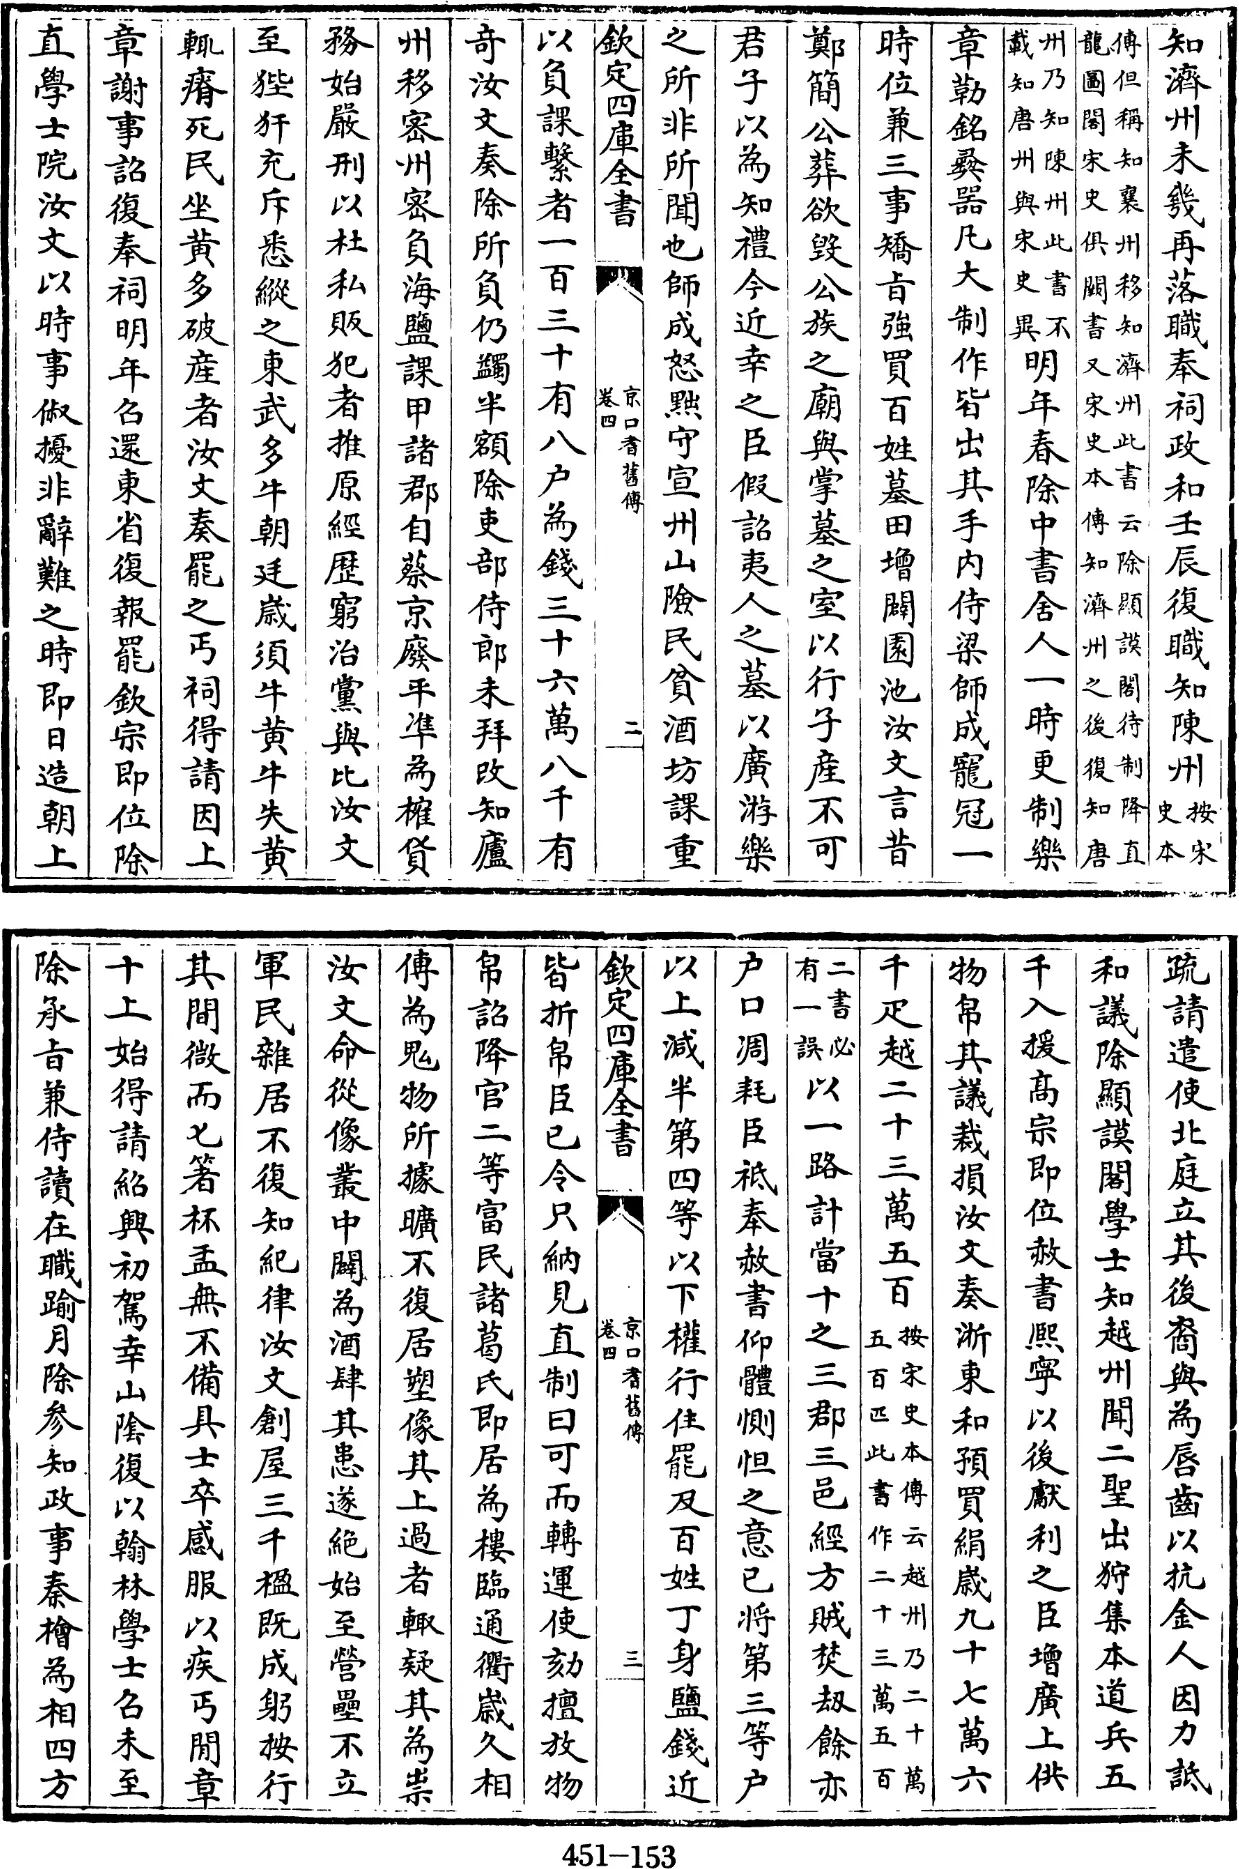 知濟州未幾再落職奉祠政和壬辰復職知陳州按宋史本
傳但稱知襄州移知濟州此書云除顯謨閣待制降直
龍圖閣宋史俱闕書又宋史本傳知濟州之後復知唐
州乃知陳州此書不載知唐州與宋史異明年春除中書舍人一時更制樂
章勒銘彞器凡大制作皆出其手内侍梁師成寵冠一
時位兼三事矯旨強買百姓墓田增闢園池汝文言昔
鄭簡公葬欲毀公族之廟與掌墓之室以行子産不可
君子以為知禮今近幸之臣假詔夷人之墓以廣游樂
之所非所聞也師成怒黜守宣州山險民貧酒坊課重
欽定四庫全書 京口耆舊傳卷四 二
以負課繫者一百三十有八户為錢三十六萬八千有
奇汝文奏除所負仍蠲半額除吏部侍郎未拜改知廬
州移密州密負海鹽課甲諸郡自蔡京廢平準為榷貨
務始嚴刑以杜私販犯者推原經歴窮治黨與比汝文
至狴犴充斥悉縱之東武多牛朝廷歲須牛黄牛失黄
輒瘠死民坐黄多破産者汝文奏罷之丐祠得請因上
章謝事詔復奉祠明年召還東省復報罷欽宗即位除
直學士院汝文以時事俶擾非辭難之時即日造朝上
疏請遣使北庭立其後裔與為唇齒以抗金人因力詆
和議除顯謨閣學士知越州聞二聖出狩集本道兵五
千入援髙宗即位赦書熙寧以後獻利之臣増廣上供
物帛其議裁損汝文奏浙東和預買絹歲九十七萬六
千疋越二十三萬五百按宋史本傳云越州乃二十萬五百匹此書作二十三萬五百
二書必有一誤以一路計當十之三郡三邑經方賊焚刼餘亦
户口凋耗臣祗奉赦書仰體惻怛之意已將第三等户
以上減半第四等以下權行住罷及百姓丁身鹽錢近
欽定四庫全書 京口耆舊傳卷四 三
皆折帛臣已令只納見直制曰可而轉運使劾擅放物
帛詔降官二等富民諸葛氏即居為樓臨通衢歲久相
傳為鬼物所據曠不復居塑像其上過者輒疑其為祟
汝文命從像叢中闢為酒肆其患遂絶始至營壘不立
軍民雜居不復知紀律汝文創屋三千楹既成躬按行
其間微而匕箸杯盂無不備具士卒感服以疾丐閒章
十上始得請紹興初駕幸山陰復以翰林學士召未至
除承旨兼侍讀在職踰月除參知政事秦檜為相四方
451-153